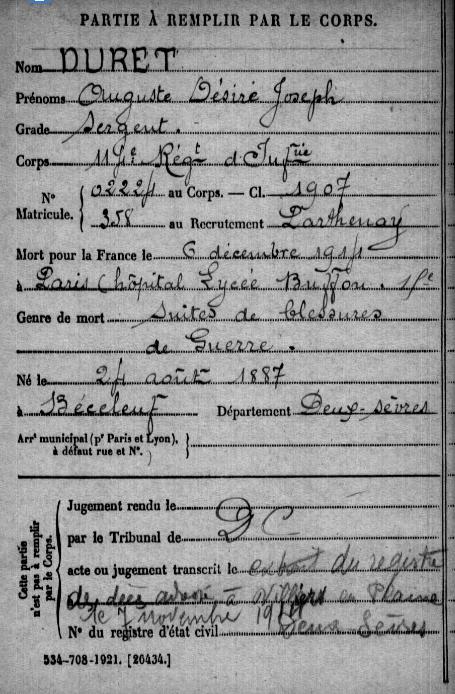 PARTIE À REMPLIR PAR LE CORPS.
Nom DURET
Prénoms Auguste Désiré Joseph
Grade Sergent.
Corps 114e Régt d'Infrie
N° Matricule. { 02224 au Corps. — Cl. 1907
358 au Recrutement Parthenay
Mort pour la France le 6 décembre 1914
à Paris (hôpital Lycée Buffon.
Genre de mort Suites de blessures
de Guerre.
Né le 24 août 1887
à Béceleuf Département Deux-Sèvres
Arrt municipal (pr Paris et Lyon), à défaut rue et N°. }
Cette partie n'est pas à remplir par le Corps.
Jugement rendu le
par le Tribunal de DC
acte ou jugement transcrit le extrait du registre
des à Villiers en Plaine
le 7 novembre
N° du registre d'état civil Deux Sèvres
534-708-1921. [26434.]